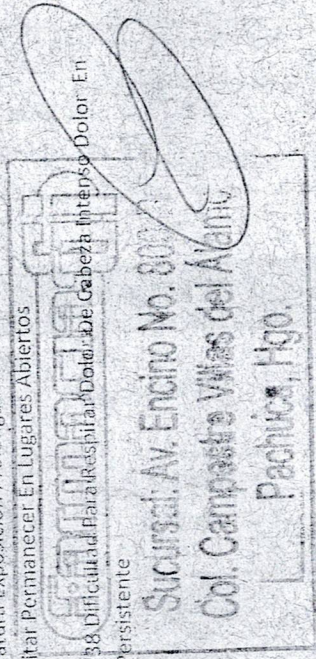 Exposición
itar Permanecer En Lugares Abiertos
38 Dificultad Para Respirar Dolor De Cabeza Intenso Dolor En
Persistente
Sucursal: Av. Encino No.
Col. Campestre Villas del Álamo
Pachuca, Hgo.